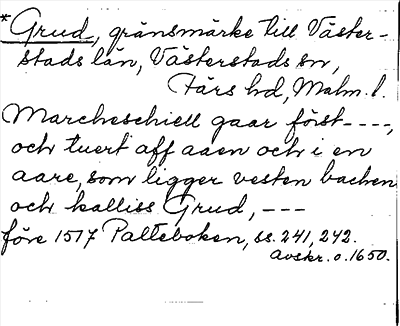 *Grud, gränsmärke till Väster-
stads län, Västerstads sn,
Färs hd, Malm. l.
Marcheschiell gaar först----,
och tuert aff aaen och i en
aare, som ligger vesten bachen
och kalliss Grud, ---
före 1517 Palteboken, ss. 241, 242.
avskr. o. 1650.